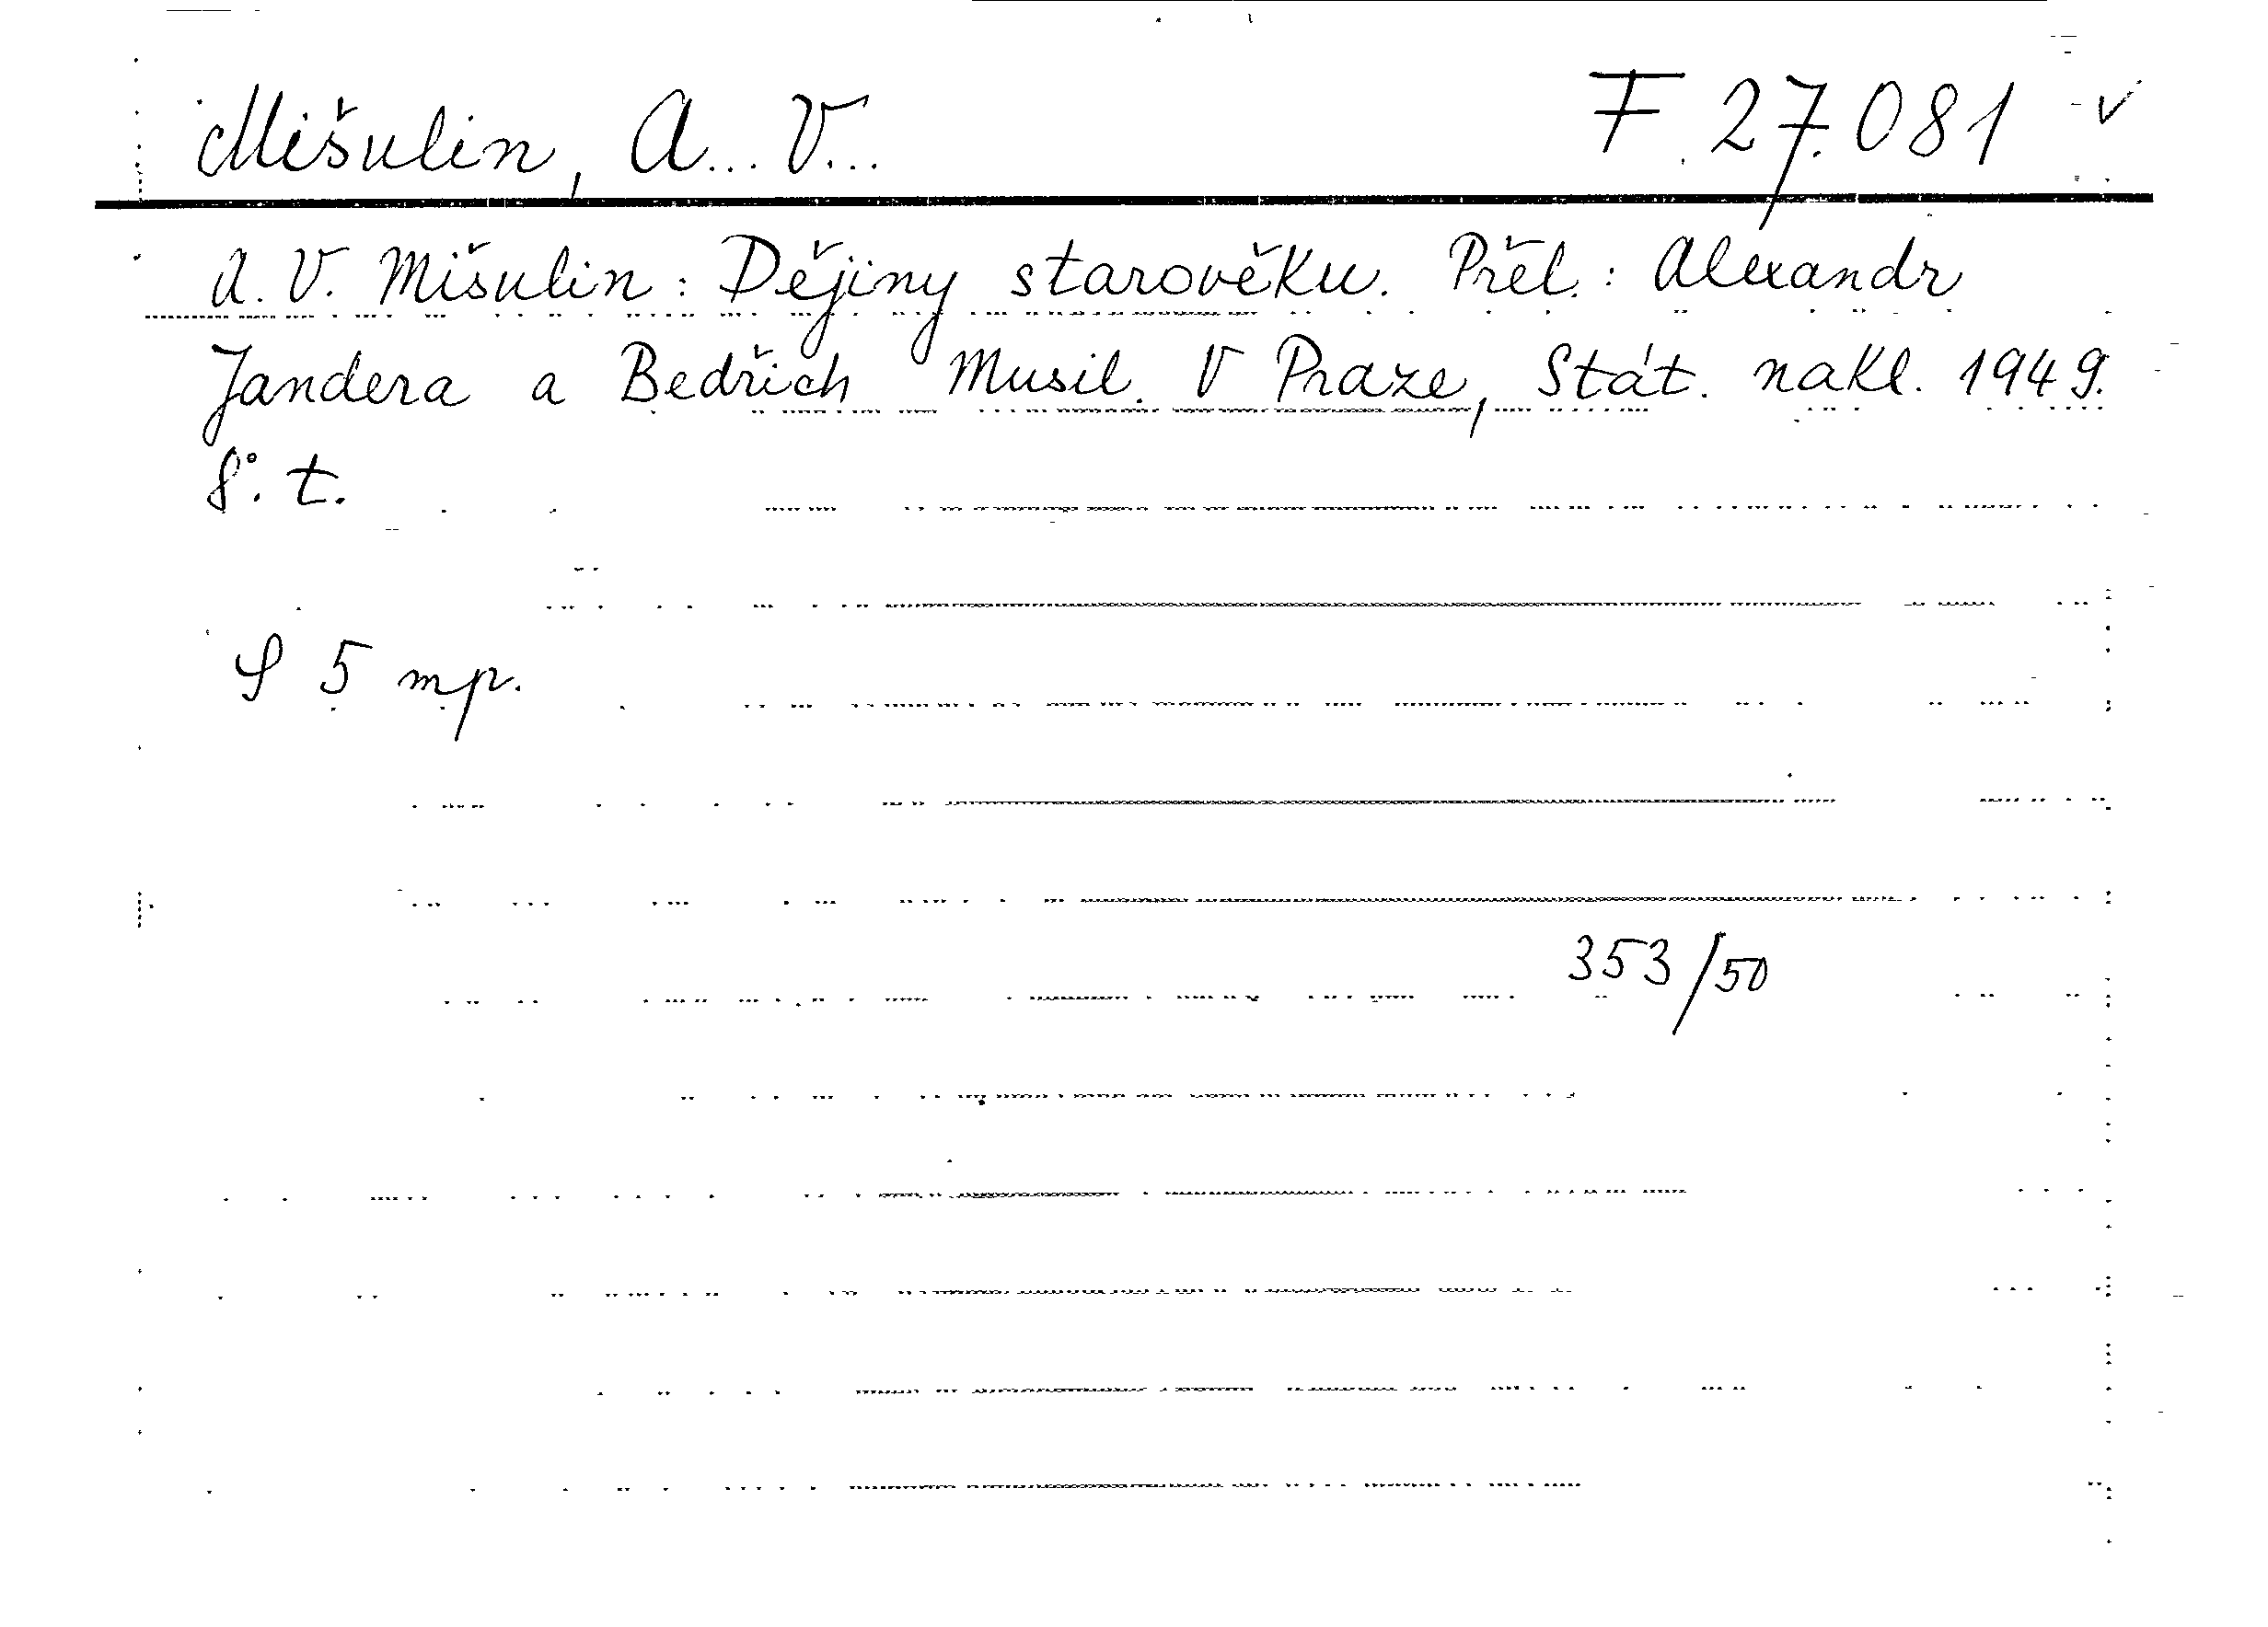 Mišulin, A... V... F 27.081 v
A. V. Mišulin: Dějiny starověku. Přel.: Alexandr
Jandera a Bedřich Musil. V Praze, Stát. nakl. 1949.
8°. t.
S 5 mp.
353/50